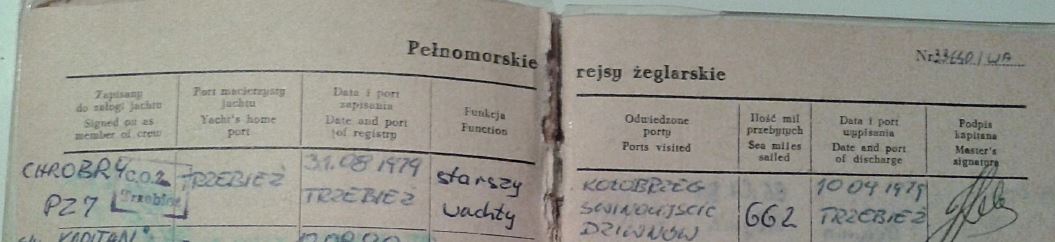 Pełnomorskie rejsy żeglarskie
Nr 33660/WA
Zapisany do załogi jachtu
Signed on as member of crew
Port macierzysty jachtu
Yacht's home port
Data i port zapisania
Date and port of registry
Funkcja
Function
Odwiedzone porty
Ports visited
Ilość mil przebytych
Sea miles sailed
Data i port wypisania
Date and port of discharge
Podpis kapitana
Master's signature
CHROBRY
C.O.Ż
Trzebież
PZ7
TRZEBIEŻ
31.08 1979
TRZEBIEŻ
starszy
wachty
KOŁOBRZEG
ŚWINOUJŚCIE
DZIWNÓW
662
10 09 1979
TRZEBIEŻ
KAPITAN